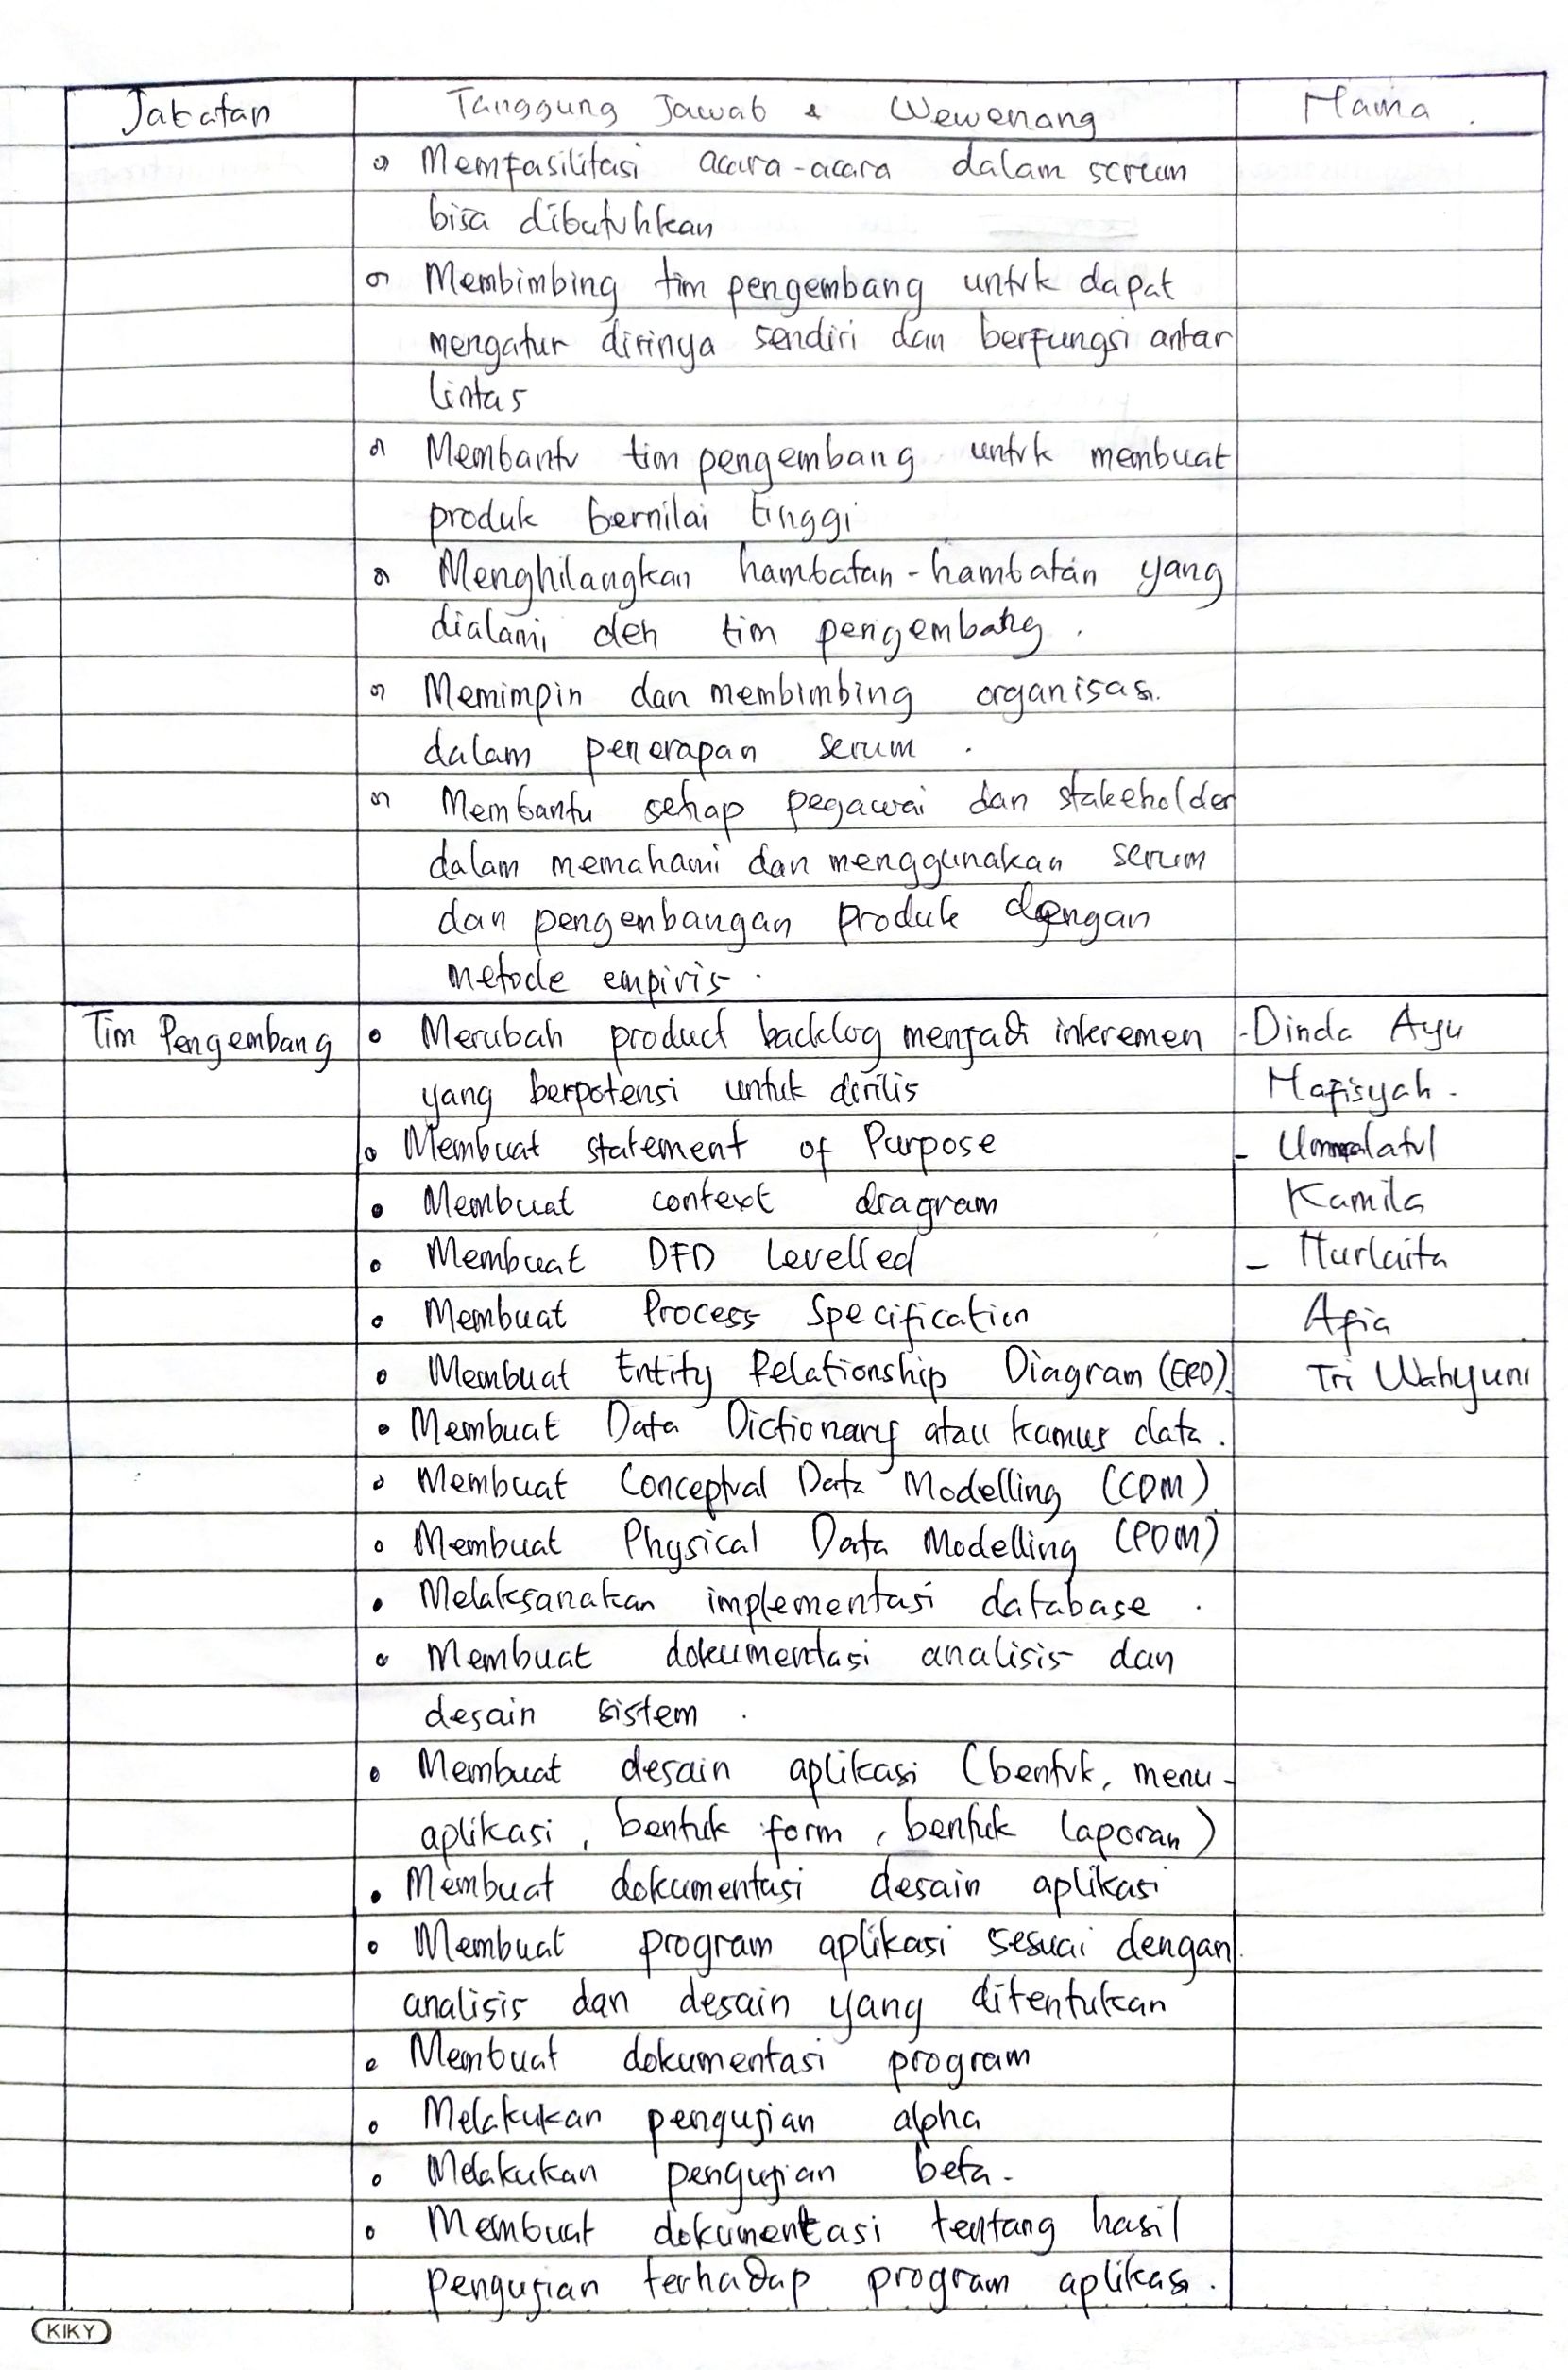 Jabatan Tanggung Jawab & Wewenang Nama
Memfasilitasi acara-acara dalam scrum
bisa dibutuhkan
Membimbing tim pengembang untuk dapat
mengatur dirinya sendiri dan berfungsi antar
lintas
Membantu tim pengembang untuk membuat
produk bernilai tinggi
Menghilangkan hambatan-hambatan yang
dialami oleh tim pengembang.
Memimpin dan membimbing organisasi.
dalam penerapan scrum.
Membantu setiap pegawai dan stakeholder
dalam memahami dan menggunakan scrum
dan pengembangan produk dengan
metode empiris.
Tim Pengembang • Merubah product backlog menjadi inkremen - Dinda Ayu
yang berpotensi untuk dirilis Nafisyah.
• Membuat statement of Purpose -
• Membuat context diagram Kamila
• Membuat DFD Levelled - Nurlaita
• Membuat Process Specification Afia
• Membuat Entity Relationship Diagram (ERD). Tri Wahyuni
• Membuat Data Dictionary atau kamus data.
• Membuat Conceptual Data Modelling (CDM).
• Membuat Physical Data Modelling (PDM)
• Melaksanakan implementasi database.
• Membuat dokumentasi analisis dan
desain sistem.
• Membuat desain aplikasi (bentuk, menu-
aplikasi, bentuk form, bentuk laporan)
• Membuat dokumentasi desain aplikasi
• Membuat program aplikasi sesuai dengan
analisis dan desain yang ditentukan
• Membuat dokumentasi program
• Melakukan pengujian alpha
• Melakukan pengujian beta.
• Membuat dokumentasi tentang hasil
pengujian terhadap program aplikasi.
KIKY